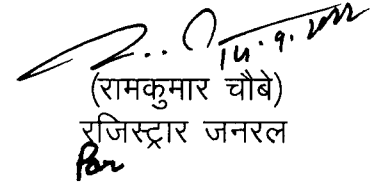 14.9.2022
(रामकुमार चौबे)
रजिस्ट्रार जनरल